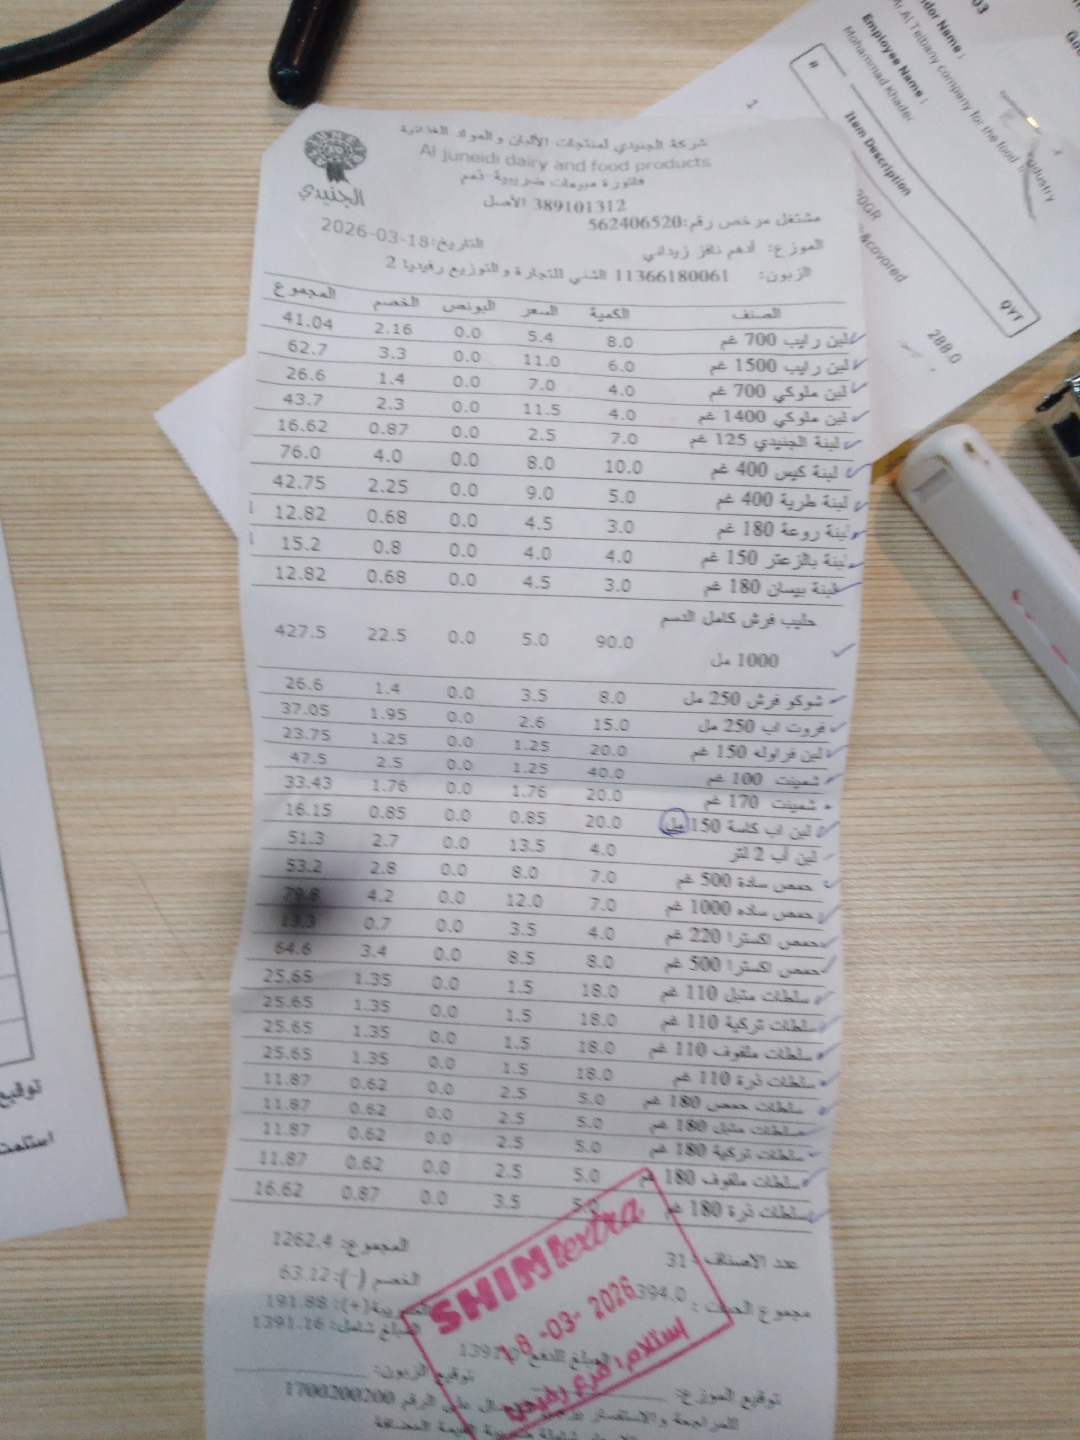 شركة الجنيدي لمنتجات الألبان و المواد الغذائية
Al juneidi dairy and food products
الجنيدي
فاتورة مبيعات ضريبية-ذمم
389101312 الأصل
مشتغل مرخص رقم:562406520
التاريخ:2026-03-18
الموزع: أدهم نافز زيداني
الزبون: 11366180061 الشني للتجارة و التوزيع رفيديا 2
الصنف الكمية السعر البونص الخصم المجموع
لبن رايب 700 غم 8.0 5.4 0.0 2.16 41.04
لبن رايب 1500 غم 6.0 11.0 0.0 3.3 62.7
لبن ملوكي 700 غم 4.0 7.0 0.0 1.4 26.6
لبن ملوكي 1400 غم 4.0 11.5 0.0 2.3 43.7
لبنة الجنيدي 125 غم 7.0 2.5 0.0 0.87 16.62
لبنة كيس 400 غم 10.0 8.0 0.0 4.0 76.0
لبنة طرية 400 غم 5.0 9.0 0.0 2.25 42.75
لبنة روعة 180 غم 3.0 4.5 0.0 0.68 12.82
لبنة بالزعتر 150 غم 4.0 4.0 0.0 0.8 15.2
لبنة بيسان 180 غم 3.0 4.5 0.0 0.68 12.82
حليب فرش كامل الدسم
1000 مل 90.0 5.0 0.0 22.5 427.5
شوكو فرش 250 مل 8.0 3.5 0.0 1.4 26.6
فروت اب 250 مل 15.0 2.6 0.0 1.95 37.05
لبن فراوله 150 غم 20.0 1.25 0.0 1.25 23.75
شمينت 100 غم 40.0 1.25 0.0 2.5 47.5
شمينت 170 غم 20.0 1.76 0.0 1.76 33.43
لبن اب كاسة 150 مل 20.0 0.85 0.0 0.85 16.15
لبن أب 2 لتر 4.0 13.5 0.0 2.7 51.3
حمص سادة 500 غم 7.0 8.0 0.0 2.8 53.2
حمص ساده 1000 غم 7.0 12.0 0.0 4.2 79.8
حمص اكسترا 220 غم 4.0 3.5 0.0 0.7 13.3
حمص اكسترا 500 غم 8.0 8.5 0.0 3.4 64.6
سلطات متبل 110 غم 18.0 1.5 0.0 1.35 25.65
سلطات تركية 110 غم 18.0 1.5 0.0 1.35 25.65
سلطات ملفوف 110 غم 18.0 1.5 0.0 1.35 25.65
سلطات ذرة 110 غم 18.0 1.5 0.0 1.35 25.65
سلطات حمص 180 غم 5.0 2.5 0.0 0.62 11.87
سلطات متبل 180 غم 5.0 2.5 0.0 0.62 11.87
سلطات تركية 180 غم 5.0 2.5 0.0 0.62 11.87
سلطات ملفوف 180 غم 5.0 2.5 0.0 0.62 11.87
سلطات ذرة 180 غم 5.0 3.5 0.0 0.87 16.62
عدد الاصناف - 31
المجموع: 1262.4
الخصم (-): 63.12
مجموع الحبات : 394.0
الضريبة(+): 191.88
المبلغ شامل: 1391.16
المبلغ الدفع
SHINI extra
18-03-2026
استلام: فرع رفيديا
توقيع الموزع:
توقيع الزبون:
للمراجعة والاستفسار على الرقم 1700200200
القيمة المضافة
Vendor Name :
Mr.Al Teibany company for the food industry
Employee Name :
Mohammad Khader
# Item Description QYT
1
288.0
توقيع
استلمت